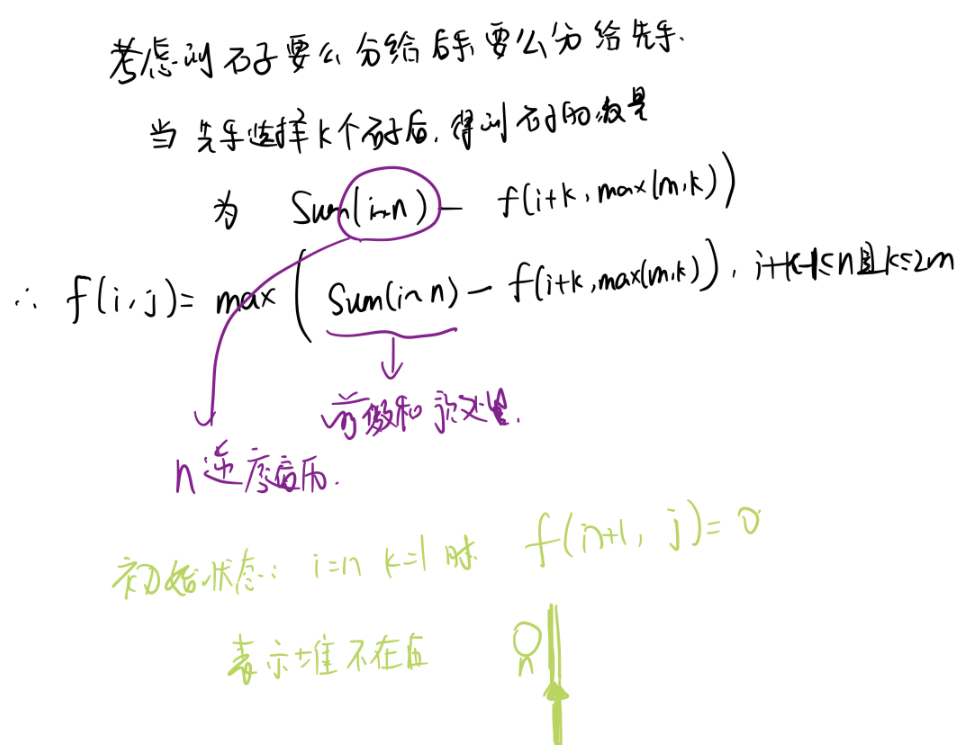 考虑到石子要么分给后手要么分给先手.
当先手选择k个石子后,得到石子的数量
为 Sum(i~n) - f(i+k, max(m,k))
∴ f(i,j)= max( Sum(i~n) - f(i+k, max(m,k)), i+k-1≤n且k≤2m
前缀和预处理.
n逆序遍历.
初始状态: i=n k=1 时 f(n+1, j)=0
表示堆不存在
n